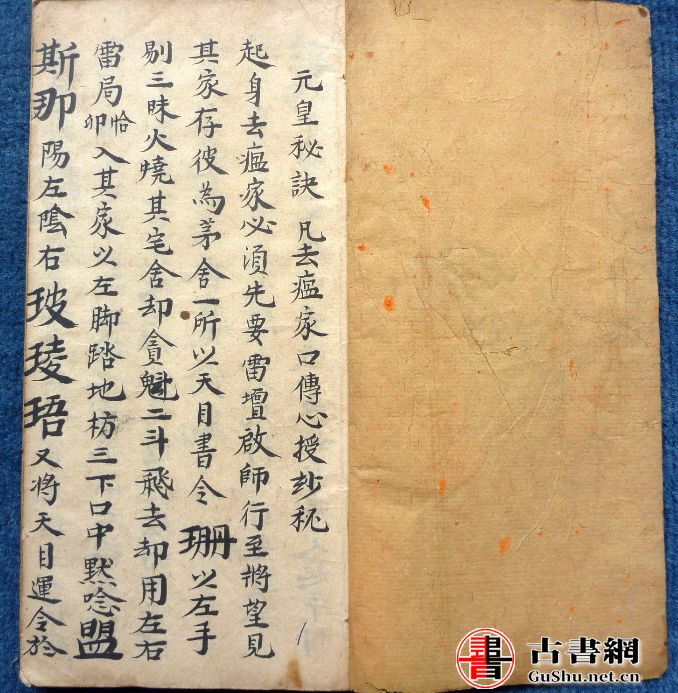 元皇秘訣 凡去瘟家口傳心授玅秘
起身去瘟家必須先要雷壇啟師行至將望見
其家存彼為茅舍一所以天目書令珊以左手
剔三昧火燒其宅舍却貪魁二斗飛去却用左右
雷局恰卯入其家以左脚踏地枋三下口中黙唸盟
斯那陽左陰右玻㻏珸又將天目運令於
古書網
GuShu.net.cn